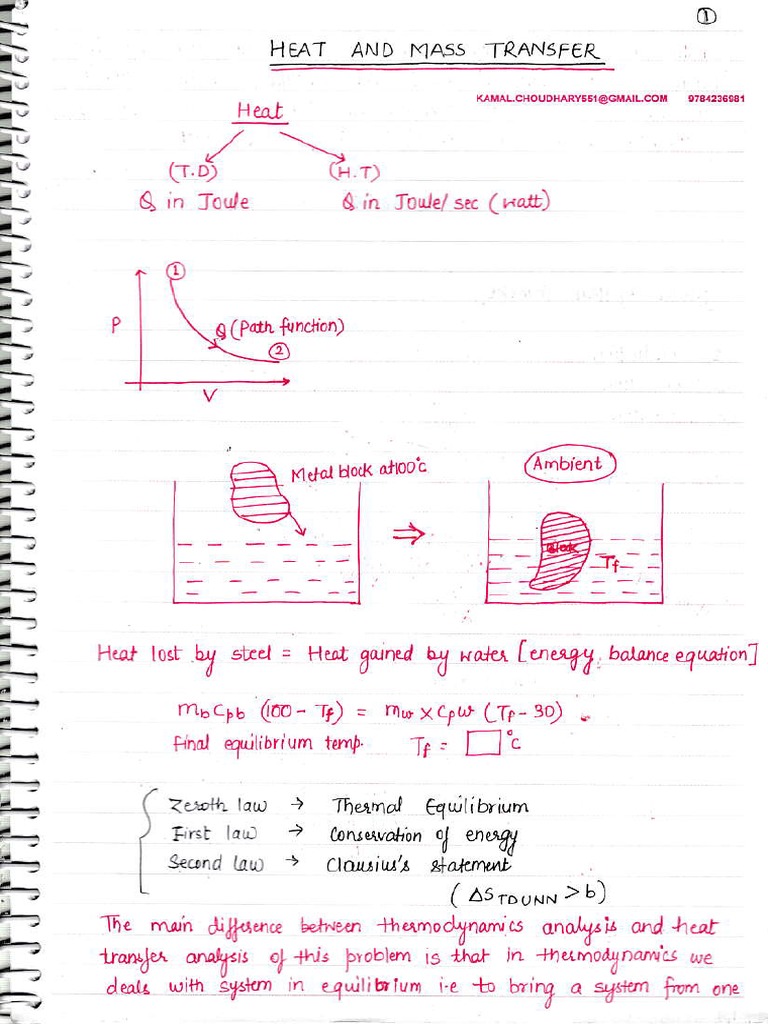 ①
HEAT AND MASS TRANSFER
KAMAL.CHOUDHARY551@GMAIL.COM 9784236981
Heat
(T.D) (H.T)
Q in Joule Q in Joule/sec (watt)
①
P
Q (Path function)
②
V
Metal block at 100°c
Ambient
⇒
Block
Tf
Heat lost by steel = Heat gained by water [energy balance equation]
mb Cpb (100 - Tf) = mw × Cpw (Tf - 30)
final equilibrium temp. Tf = □°c
Zeroth law → Thermal Equilibrium
First law → Conservation of energy
Second law → Clausius's statement
(ΔS TDUNN > b)
The main difference between thermodynamics analysis and heat
transfer analysis of this problem is that in thermodynamics we
deals with system in equilibrium i.e to bring a system from one